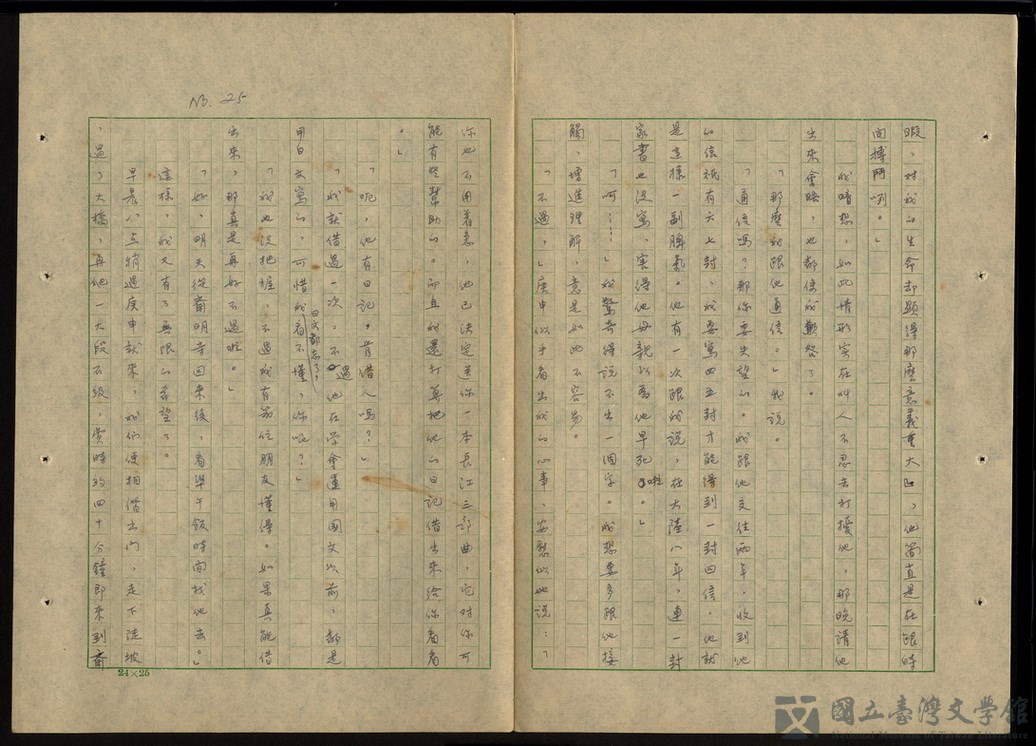 暇,对我的生命却顯得那麼意義重大凸,他簡直是在跟時
间搏鬥咧。」
我暗想,如此情形实在叫人不忍去打擾他,那晚請他
出來會晤,也都使我歉疚了。
「那麼就跟他通信。」我說。
「通信嗎?那你要失望的。我跟他交往兩年,收到他
的信祇有六七封,我要寫四五封才能得到一封回信。他就
是這樣一副脾氣。他有一次跟我說,在大陸八年,連一封
家書也沒寫,害得他母親以為他早死啦。」
「啊……」我驚奇得說不出一個字。我想要多跟他接
觸,增進理解,意是如此不容易。
「不過,」庚申似乎看出我的心事,安慰似地說:「
你也不用着急,他已決定送你一本長江三部曲,它对你可
能有些幫助的。而且我還打算把他的日記借出來給你看看
。」
「呃,他有日記。肯借人嗎?」
「我就借過一次,不過他在学會運用國文以前,都是
用日文寫的,可惜我看不懂,你呢?」
日文都忘了,
「我也沒把握,不過我有幾位朋友懂得。如果真能借
出來,那真是再好不過啦。」
「好,明天從齋明寺回來後,看準午飯時间找他去。」
這樣,我又有了無限的希望了。
早晨八点稍過庚申就來,我们便相偕出门,走下陡坡
,過了大橋,再爬一大段石級,費時約四十分鐘即來到齋
NO. 25
24×25
國立臺灣文學館
National Museum of Taiwan Literature